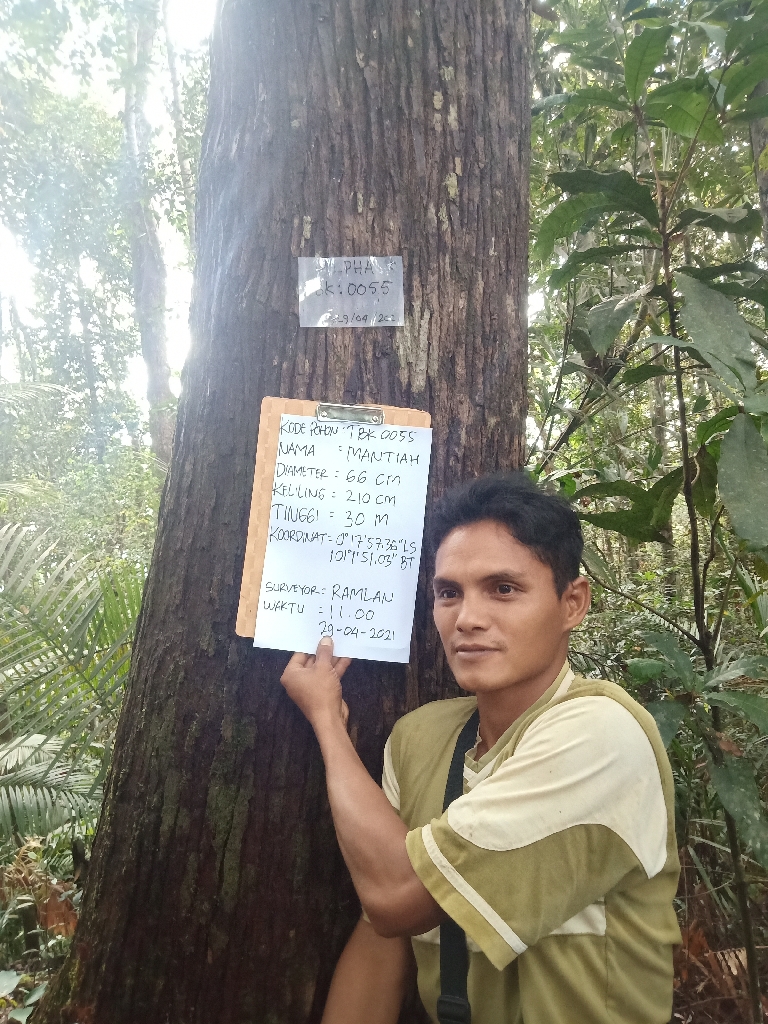 K: 0055
29/04/202
KODE POHON : TBK 0055
NAMA : MANTIAH
DIAMETER = 66 CM
KELILING = 210 CM
TINGGI = 30 M
KOORDINAT = 0°17'57.36"LS
101°1'51.03" BT
SURVEYOR = RAMLAN
WAKTU = 11.00
29-04-2021